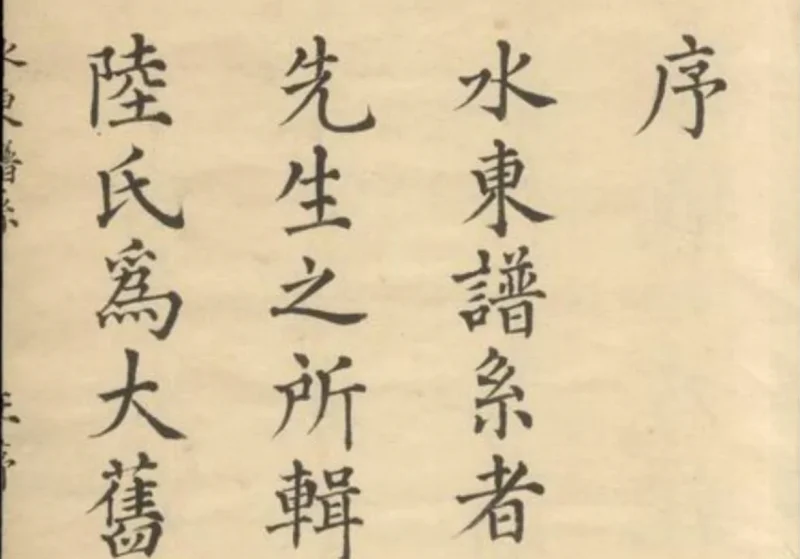 序
水東譜系者
先生之所輯
陸氏為大舊
水東譜系 王序